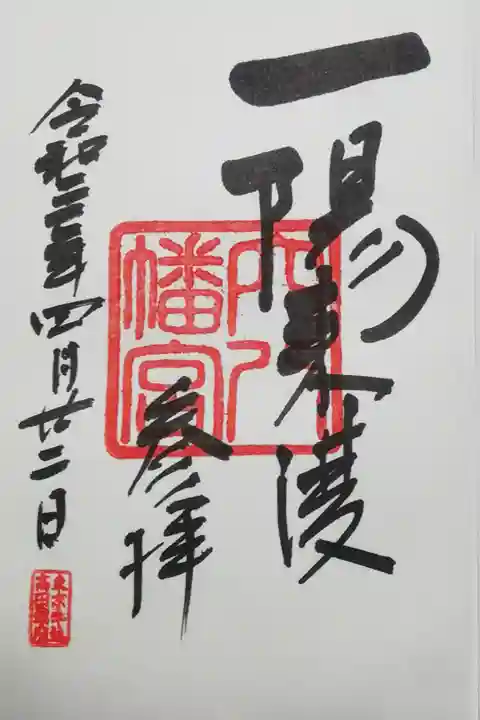 一陽來復
穴八
幡宮
参拝
令和三年四月廿二日